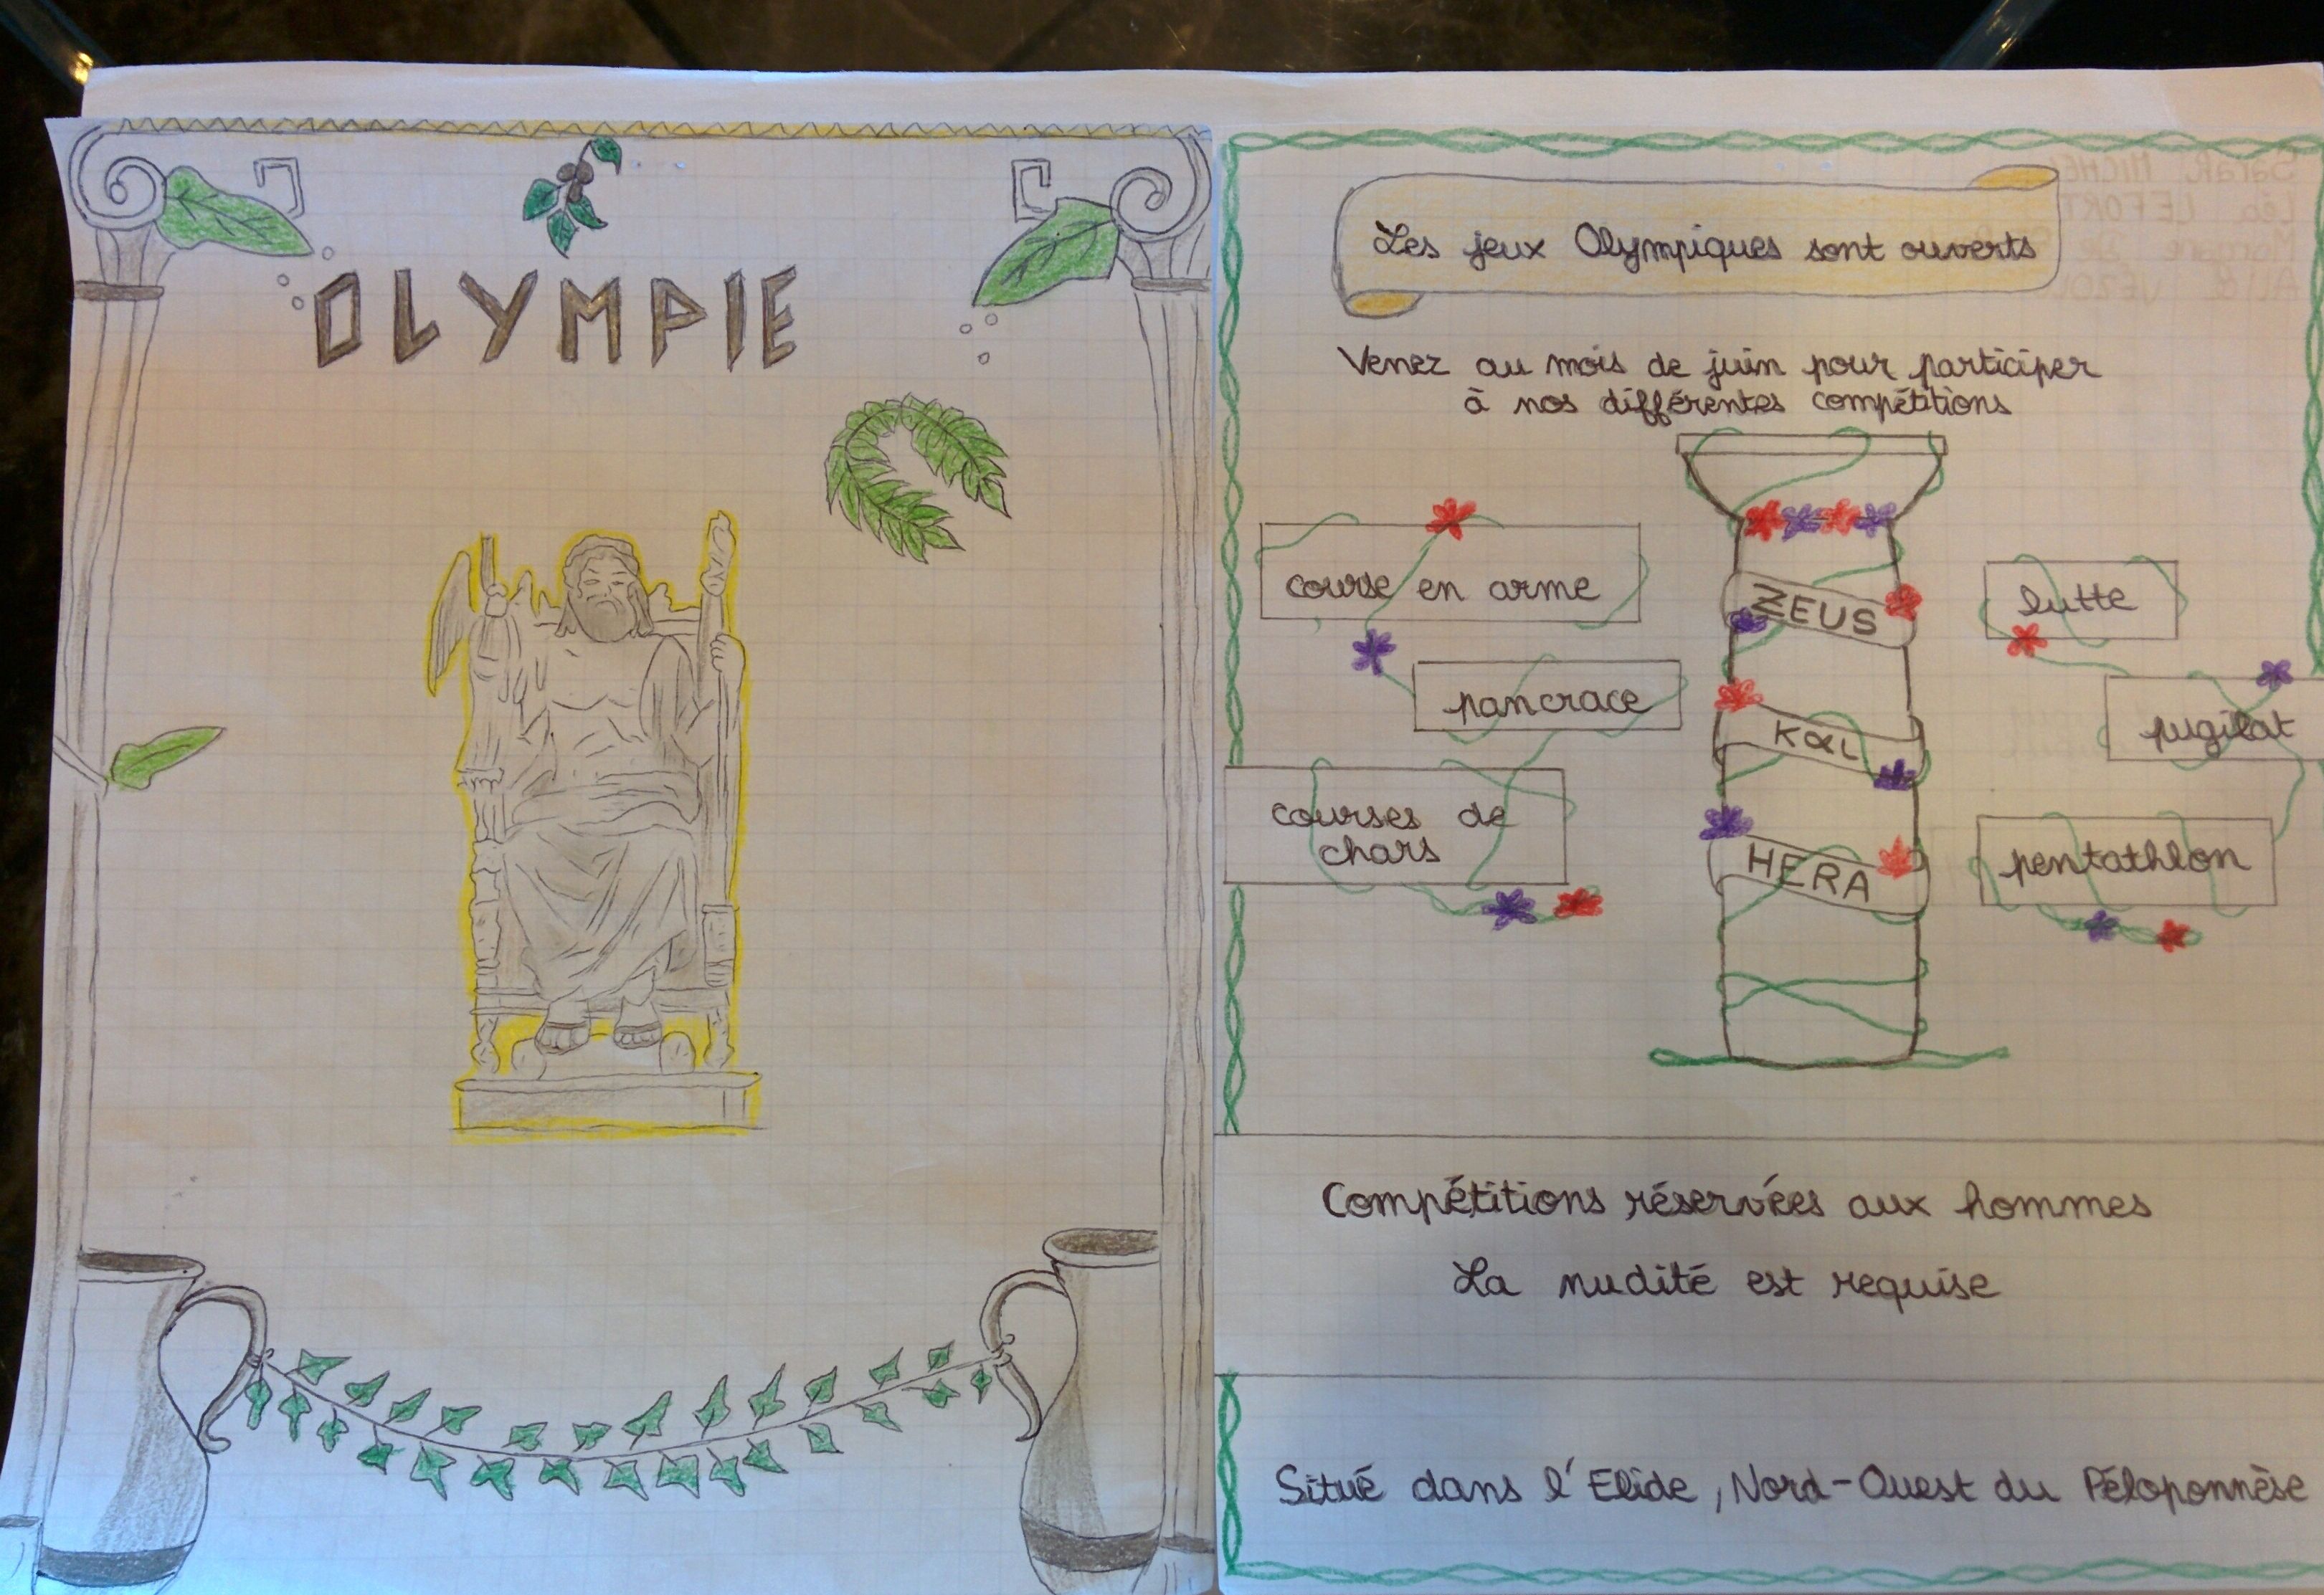 OLYMPIE
Les jeux Olympiques sont ouverts
Venez au mois de juin pour participer
à nos différentes compétitions
course en arme
pancrace
courses de
chars
ZEUS
καὶ
HERA
lutte
pugilat
pentathlon
Compétitions réservées aux hommes
La nudité est requise
Situé dans l'Elide, Nord-Ouest du Péloponnèse